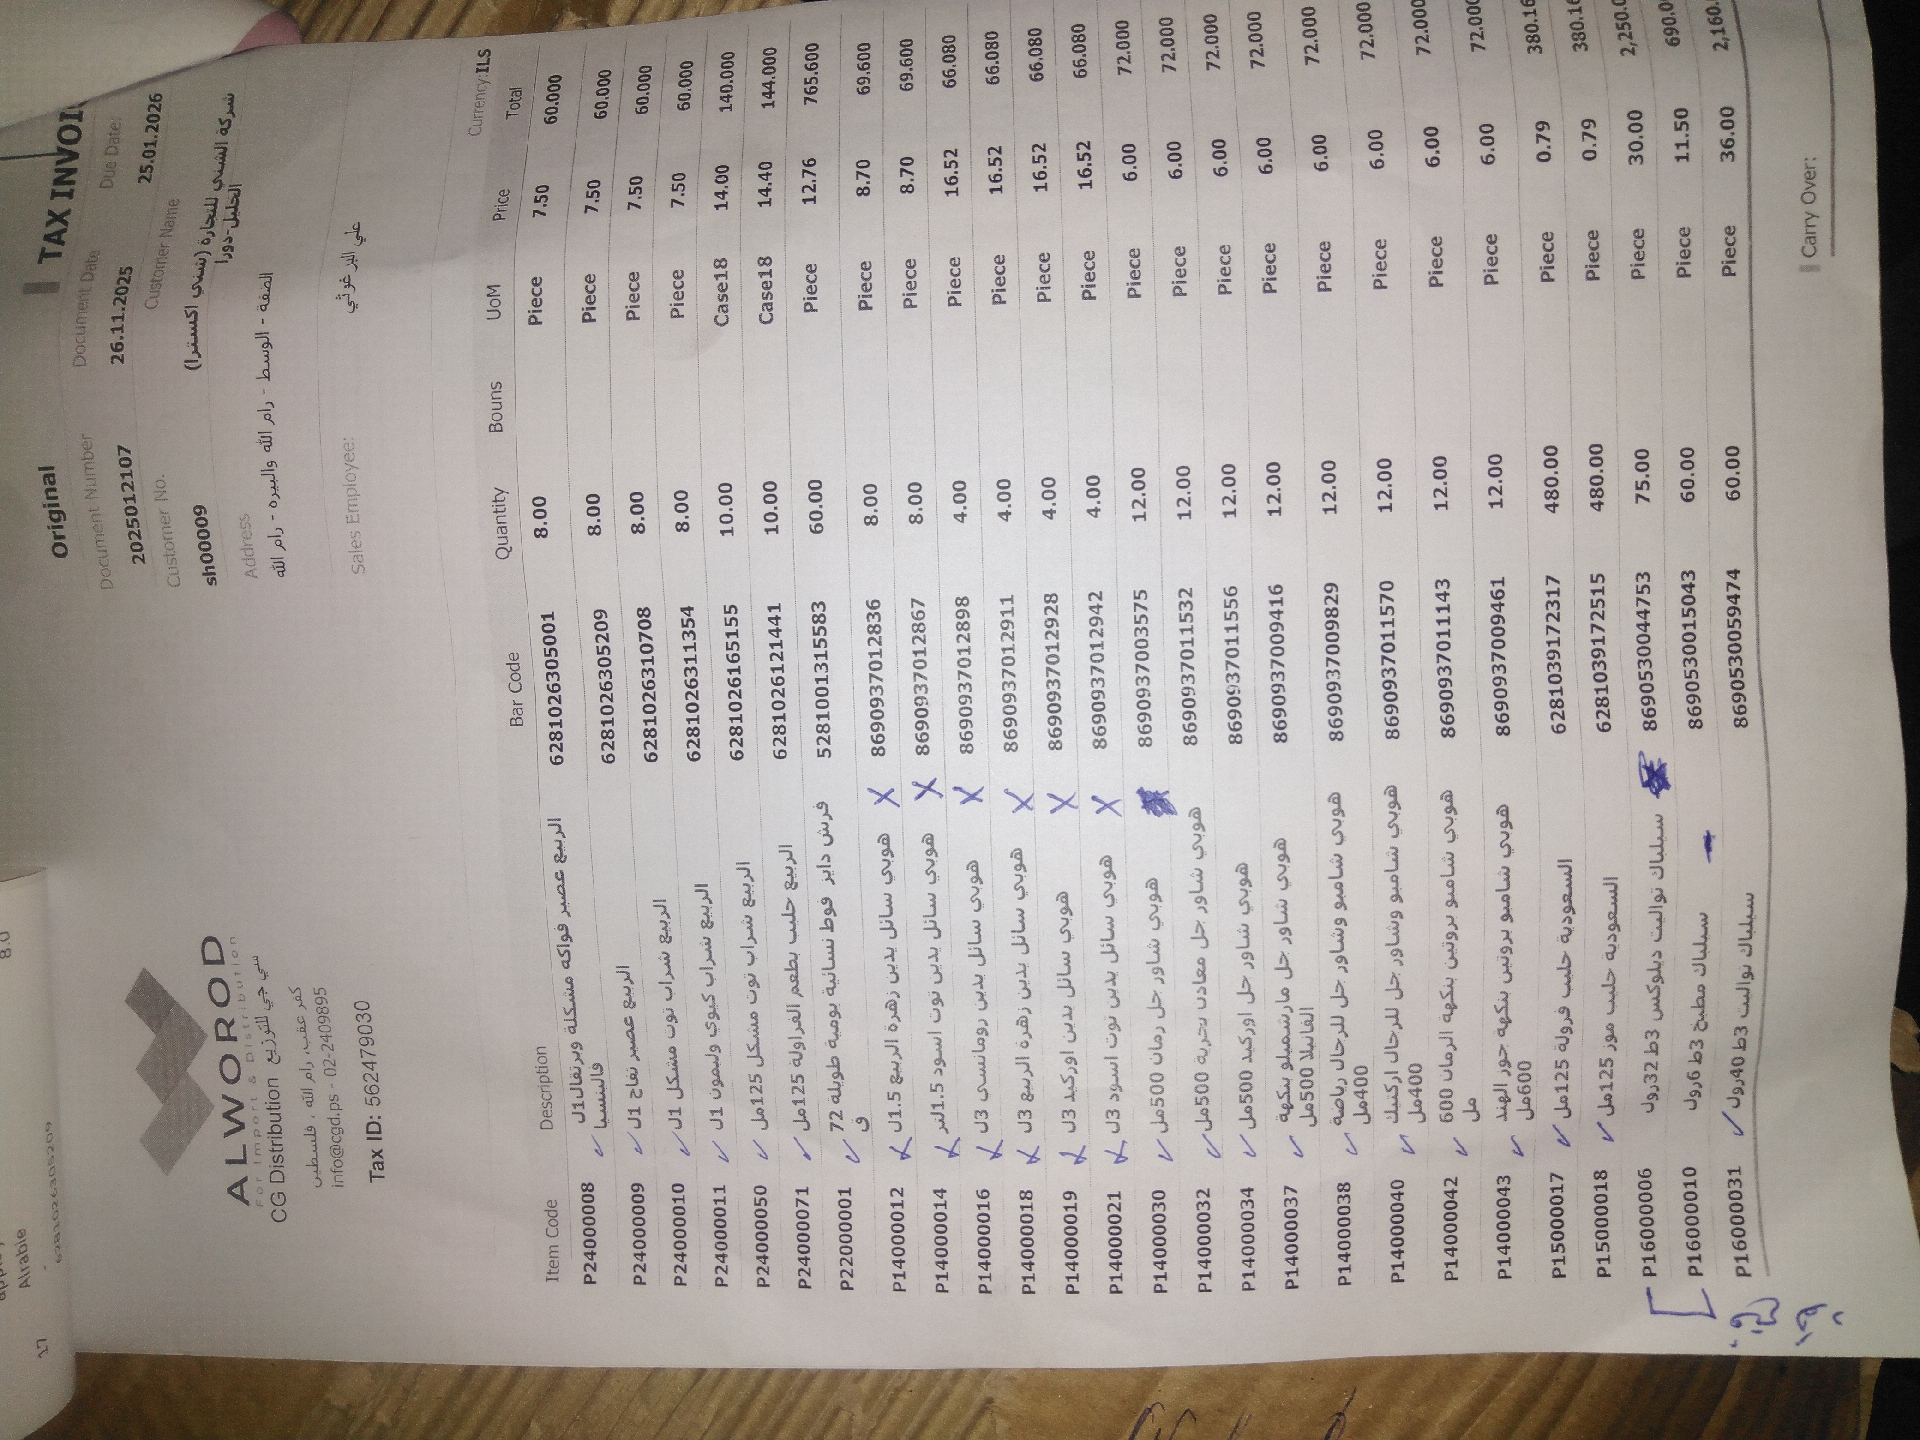 Original
TAX INVOI
Document Number
Document Date
Due Date:
2025012107
26.11.2025
25.01.2026
Customer No.
Customer Name
sh00009
شركة الشني للتجارة (شني اكسترا)
الخليل-دورا
Address
الضفة - الوسط - رام الله والبيره - رام الله
Sales Employee:
علي البرغوثي
ALWOROD
For Import & Distribution
CG Distribution سي جي للتوزيع
كفر عقب، رام الله ، فلسطين
info@cgd.ps - 02-2409895
Tax ID: 562479030
Currency:ILS
Item Code Description Bar Code Quantity Bouns UoM Price Total
P24000008 الربيع عصير فواكه مشكلة وبرتقال1ل فالنسيا 6281026305001 8.00 Piece 7.50 60.000
P24000009 الربيع عصير تفاح 1ل 6281026305209 8.00 Piece 7.50 60.000
P24000010 الربيع شراب توت مشكل 1ل 6281026310708 8.00 Piece 7.50 60.000
P24000011 الربيع شراب كيوي وليمون 1ل 6281026311354 8.00 Piece 7.50 60.000
P24000050 الربيع شراب توت مشكل 125مل 6281026165155 10.00 Case18 14.00 140.000
P24000071 الربيع حليب بطعم الفراولة 125مل 6281026121441 10.00 Case18 14.40 144.000
P22000001 فرش دايز فوط نسائية يومية طويلة 72 ق 5281001315583 60.00 Piece 12.76 765.600
P14000012 هوبي سائل يدين زهرة الربيع 1.5ل 8690937012836 8.00 Piece 8.70 69.600
P14000014 هوبي سائل يدين توت اسود 1.5لتر 8690937012867 8.00 Piece 8.70 69.600
P14000016 هوبي سائل يدين رومانسي 3ل 8690937012898 4.00 Piece 16.52 66.080
P14000018 هوبي سائل يدين زهرة الربيع 3ل 8690937012911 4.00 Piece 16.52 66.080
P14000019 هوبي سائل يدين اوركيد 3ل 8690937012928 4.00 Piece 16.52 66.080
P14000021 هوبي سائل يدين توت اسود 3ل 8690937012942 4.00 Piece 16.52 66.080
P14000030 هوبي شاور جل رمان 500مل 8690937003575 12.00 Piece 6.00 72.000
P14000032 هوبي شاور جل معادن بحرية 500مل 8690937011532 12.00 Piece 6.00 72.000
P14000034 هوبي شاور جل اوركيد 500مل 8690937011556 12.00 Piece 6.00 72.000
P14000037 هوبي شاور جل مارشميلو بنكهة الفانيلا 500مل 8690937009416 12.00 Piece 6.00 72.000
P14000038 هوبي شامبو وشاور جل للرجال رياضة 400مل 8690937009829 12.00 Piece 6.00 72.000
P14000040 هوبي شامبو وشاور جل للرجال اركتيك 400مل 8690937011570 12.00 Piece 6.00 72.000
P14000042 هوبي شامبو بروتين بنكهة الرمان 600 مل 8690937011143 12.00 Piece 6.00 72.000
P14000043 هوبي شامبو بروتين بنكهة جوز الهند 600مل 8690937009461 12.00 Piece 6.00 72.00
P15000017 السعودية حليب فرولة 125مل 6281039172317 480.00 Piece 0.79 380.16
P15000018 السعودية حليب موز 125مل 6281039172515 480.00 Piece 0.79 380.16
P16000006 سيلباك تواليت ديلوكس 3ط 32رول 8690530044753 75.00 Piece 30.00 2,250.0
P16000010 سيلباك مطبخ 3ط 6رول 8690530015043 60.00 Piece 11.50 690.0
P16000031 سيلباك تواليت 3ط 40رول 8690530059474 60.00 Piece 36.00 2,160.
Carry Over:
Alrabie
6281026305209
8.0
27